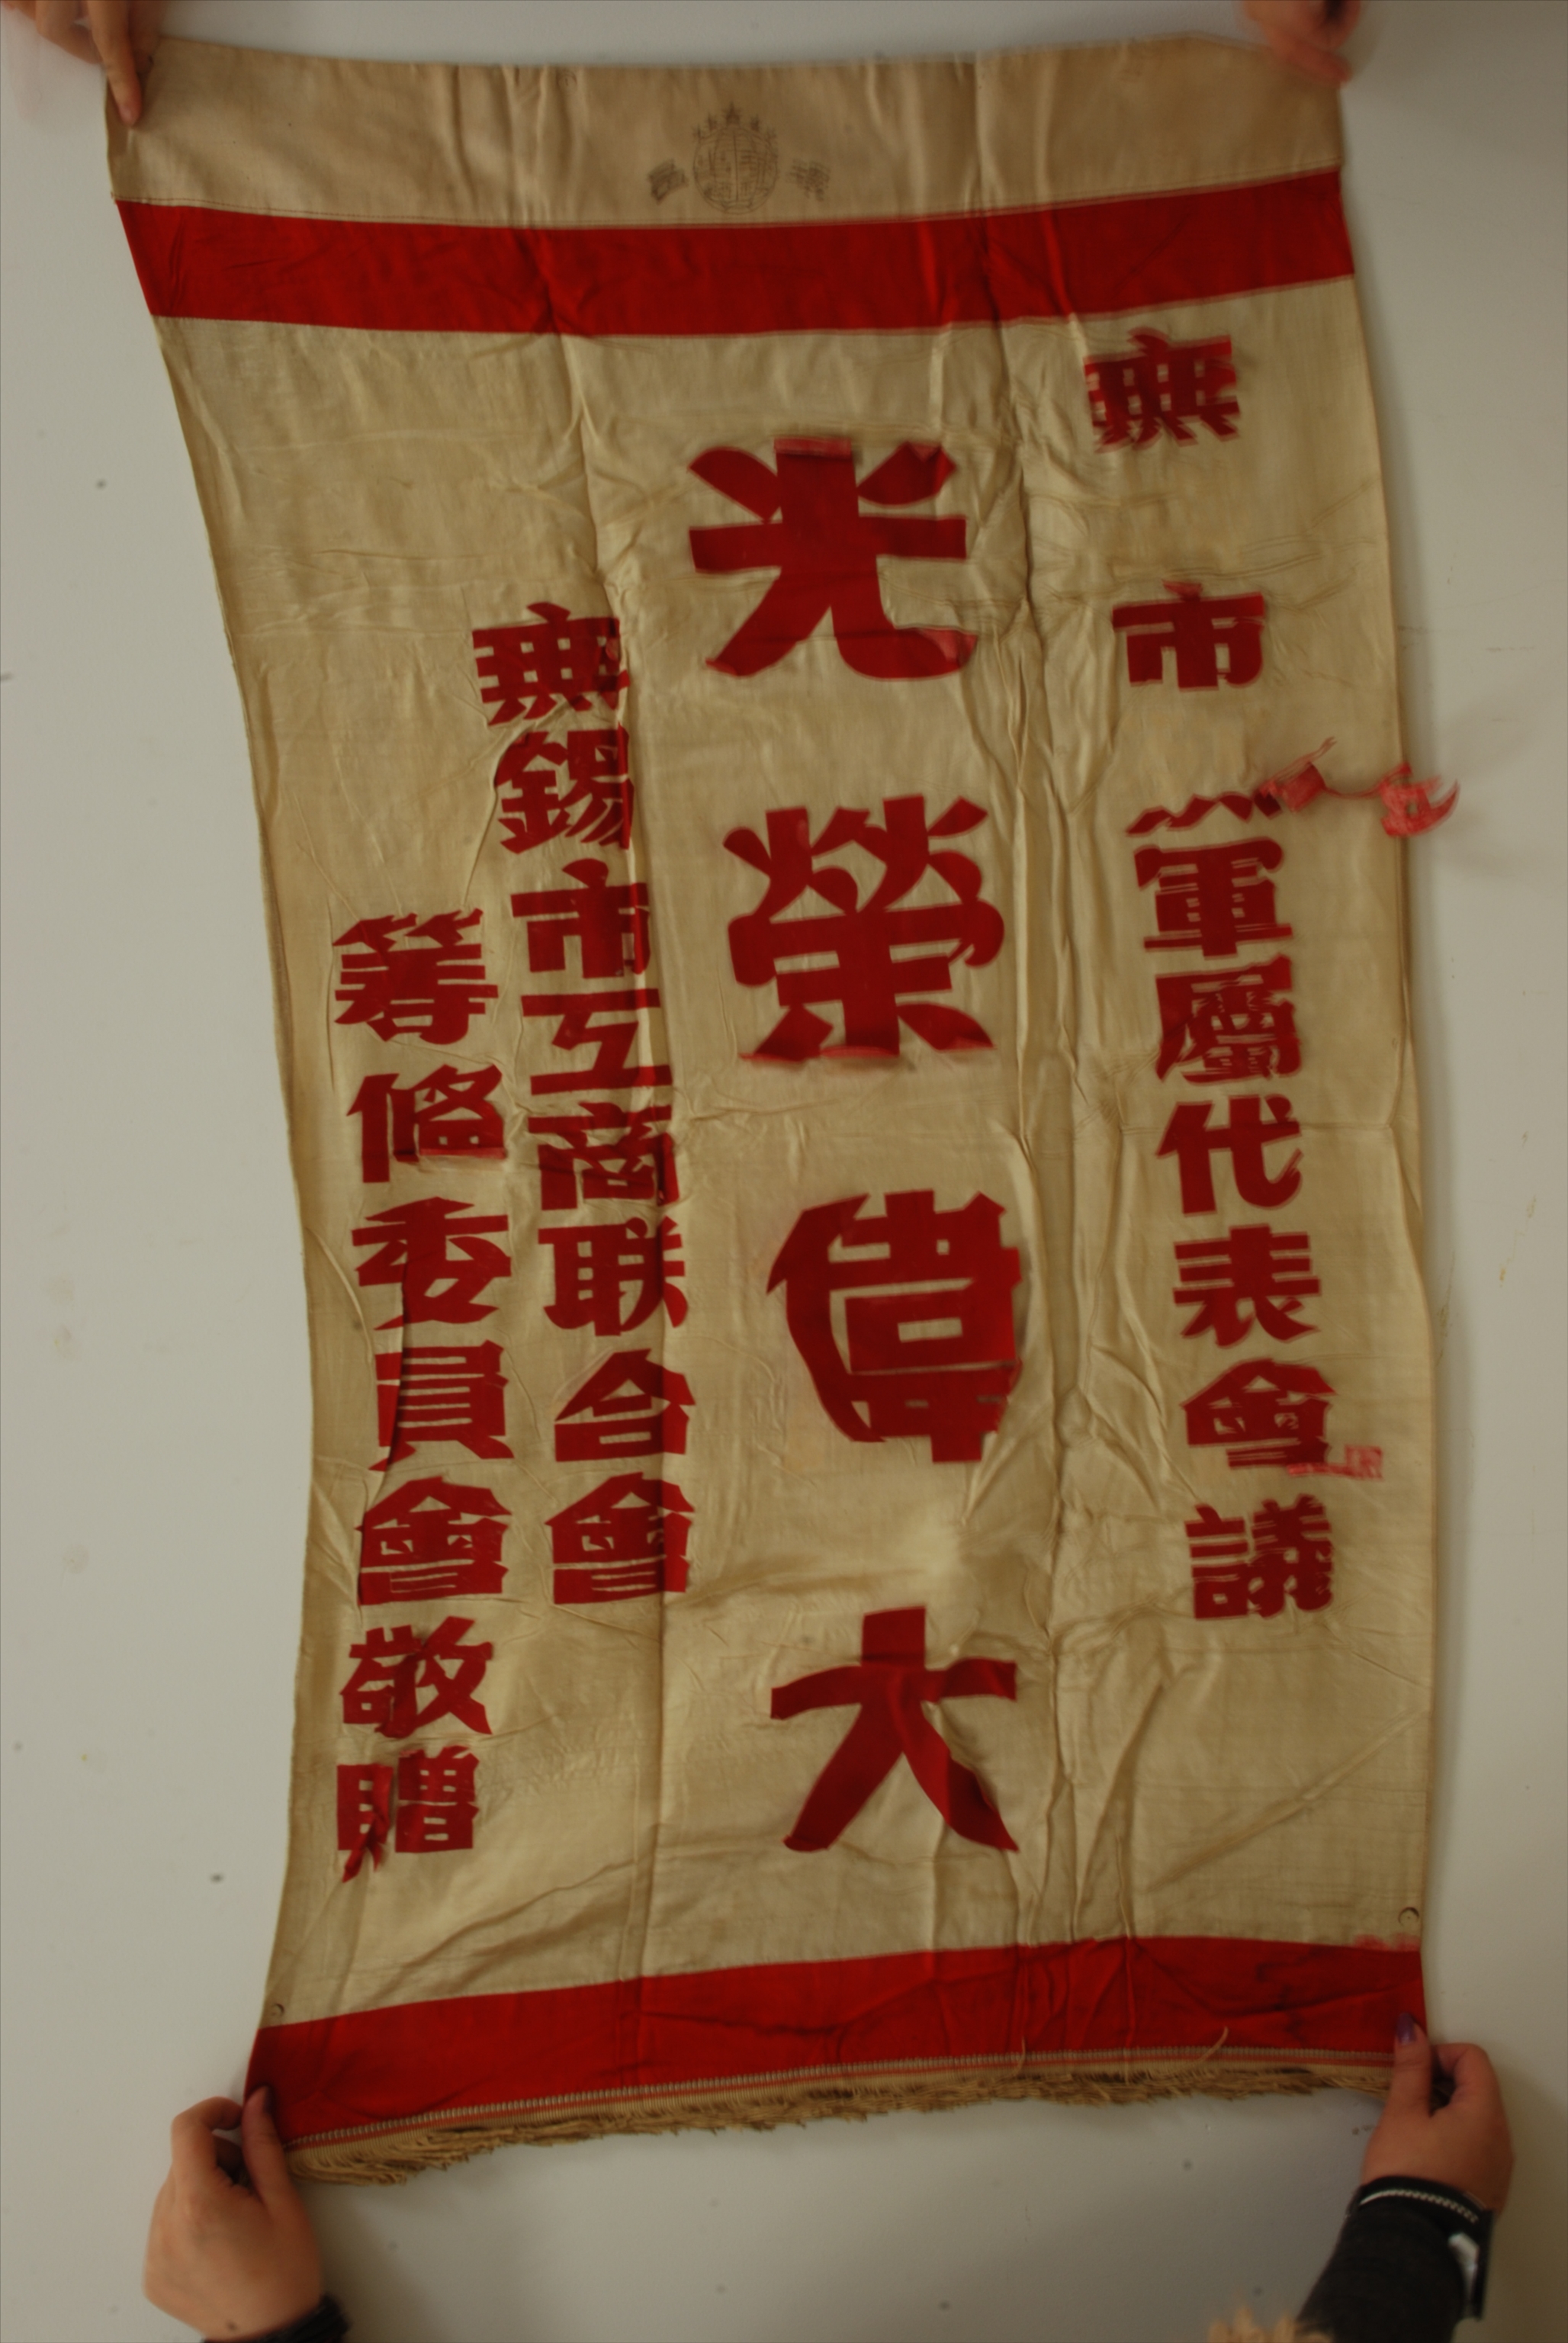 無市軍屬代表會議
光榮偉大
無錫市工商联合會
筹備委員會敬贈